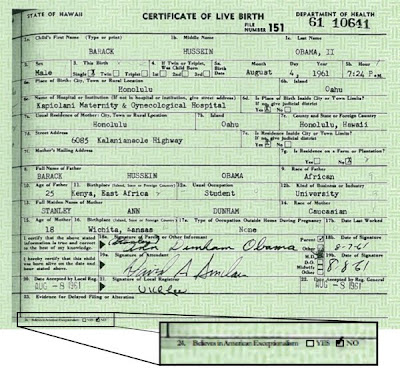 STATE OF HAWAII CERTIFICATE OF LIVE BIRTH DEPARTMENT OF HEALTH
FILE NUMBER 151 61 10641
1a. Child's First Name (Type or print) 1b. Middle Name 1c. Last Name
BARACK HUSSEIN OBAMA, II
2. Sex 3. This Birth 4. If Twin or Triplet, Was Child Born 5a. Birth Date Month Day Year 5b. Hour
Male Single X Twin Triplet 1st 2nd 3rd August 4, 1961 7:24 P.M.
6a. Place of Birth: City, Town or Rural Location 6b. Island
Honolulu Oahu
6c. Name of Hospital or Institution (If not in hospital or institution, give street address) 6d. Is Place of Birth Inside City or Town Limits? If no, give judicial district
Kapiolani Maternity & Gynecological Hospital Yes X No
7a. Usual Residence of Mother: City, Town or Rural Location 7b. Island 7c. County and State or Foreign Country
Honolulu Oahu Honolulu, Hawaii
7d. Street Address 7e. Is Residence Inside City or Town Limits? If no, give judicial district
6085 Kalanianaole Highway Yes X No
7f. Mother's Mailing Address 7g. Is Residence on a Farm or Plantation?
Yes No X
8. Full Name of Father 9. Race of Father
BARACK HUSSEIN OBAMA African
10. Age of Father 11. Birthplace (Island, State or Foreign Country) 12a. Usual Occupation 12b. Kind of Business or Industry
25 Kenya, East Africa Student University
13. Full Maiden Name of Mother 14. Race of Mother
STANLEY ANN DUNHAM Caucasian
15. Age of Mother 16. Birthplace (Island, State or Foreign Country) 17a. Type of Occupation Outside Home During Pregnancy 17b. Date Last Worked
18 Wichita, Kansas None
I certify that the above stated information is true and correct to the best of my knowledge. 18a. Signature of Parent or Other Informant Parent Other 18b. Date of Signature
(Stanley) Ann Dunham Obama 8-7-61
I hereby certify that this child was born alive on the date and hour stated above. 19a. Signature of Attendant M.D. D.O. Midwife Other 19b. Date of Signature
8-8-61
20. Date Accepted by Local Reg. 21. Signature of Local Registrar 22. Date Accepted by Reg. General
AUG -8 1961 AUG -8 1961
23. Evidence for Delayed Filing or Alteration
24. Believes in American Exceptionalism YES NO
24. Believes in American Exceptionalism YES NO